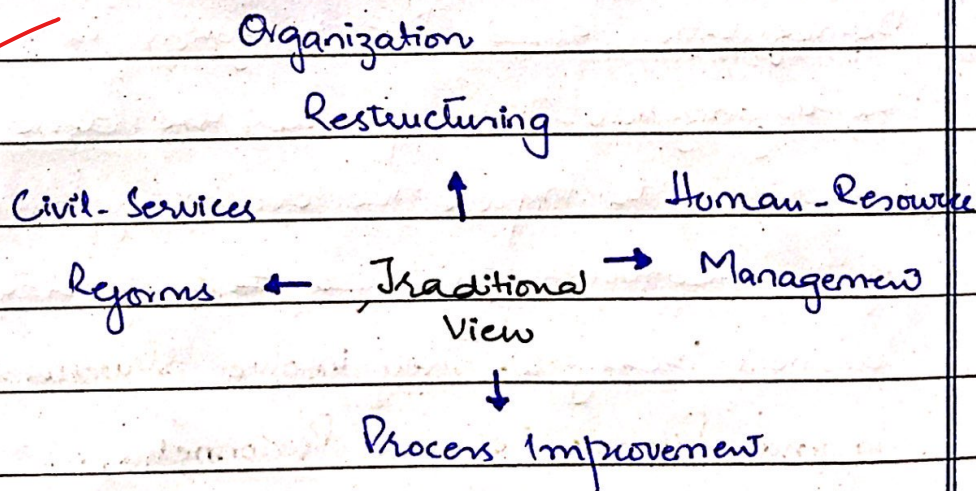 Organization
Restructuring
Civil-Services Human-Resource
Reforms ← Traditional → Management
View
Process Improvement